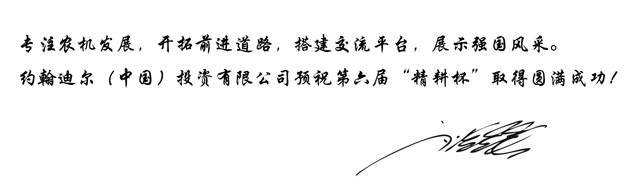 专注农机发展，开拓前进道路，搭建交流平台，展示强国风采。
约翰迪尔（中国）投资有限公司预祝第六届“精耕杯”取得圆满成功！